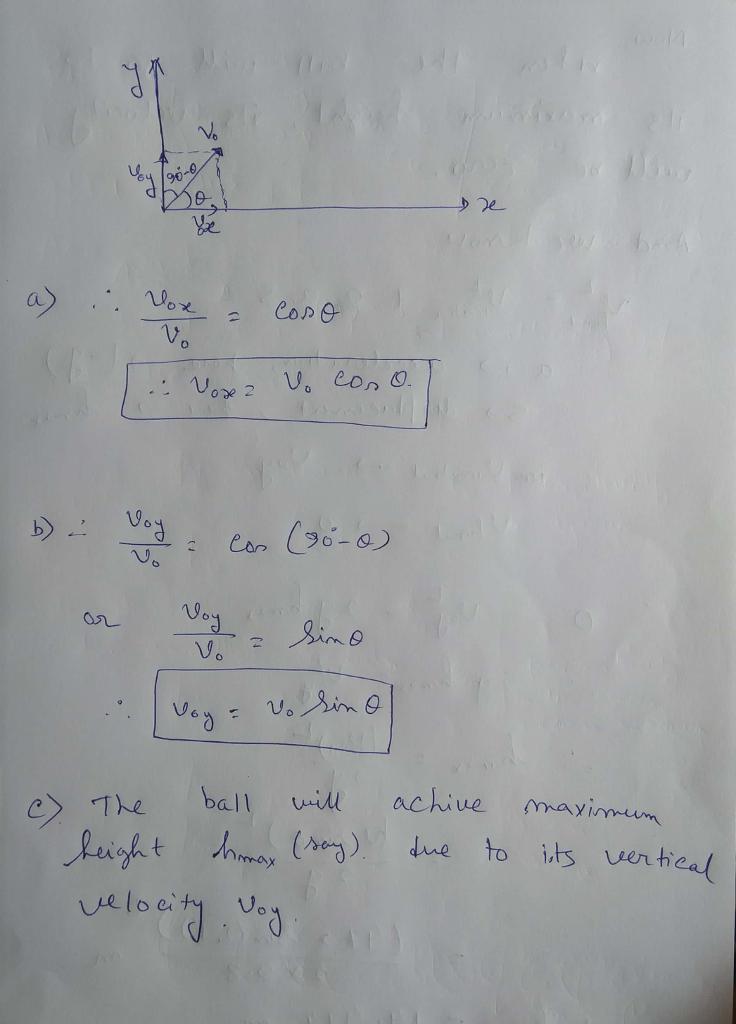 y
V₀
V₀y 90°-θ
θ
x
V₀x
a) ∴ V₀x / V₀ = cosθ
∴ V₀x = V₀ cosθ.
b) ∴ V₀y / V₀ = cos (90°-θ)
or V₀y / V₀ = sinθ
∴ V₀y = V₀ sinθ
c) The ball will achive maximum
height hmax (say). due to its vertical
velocity V₀y.